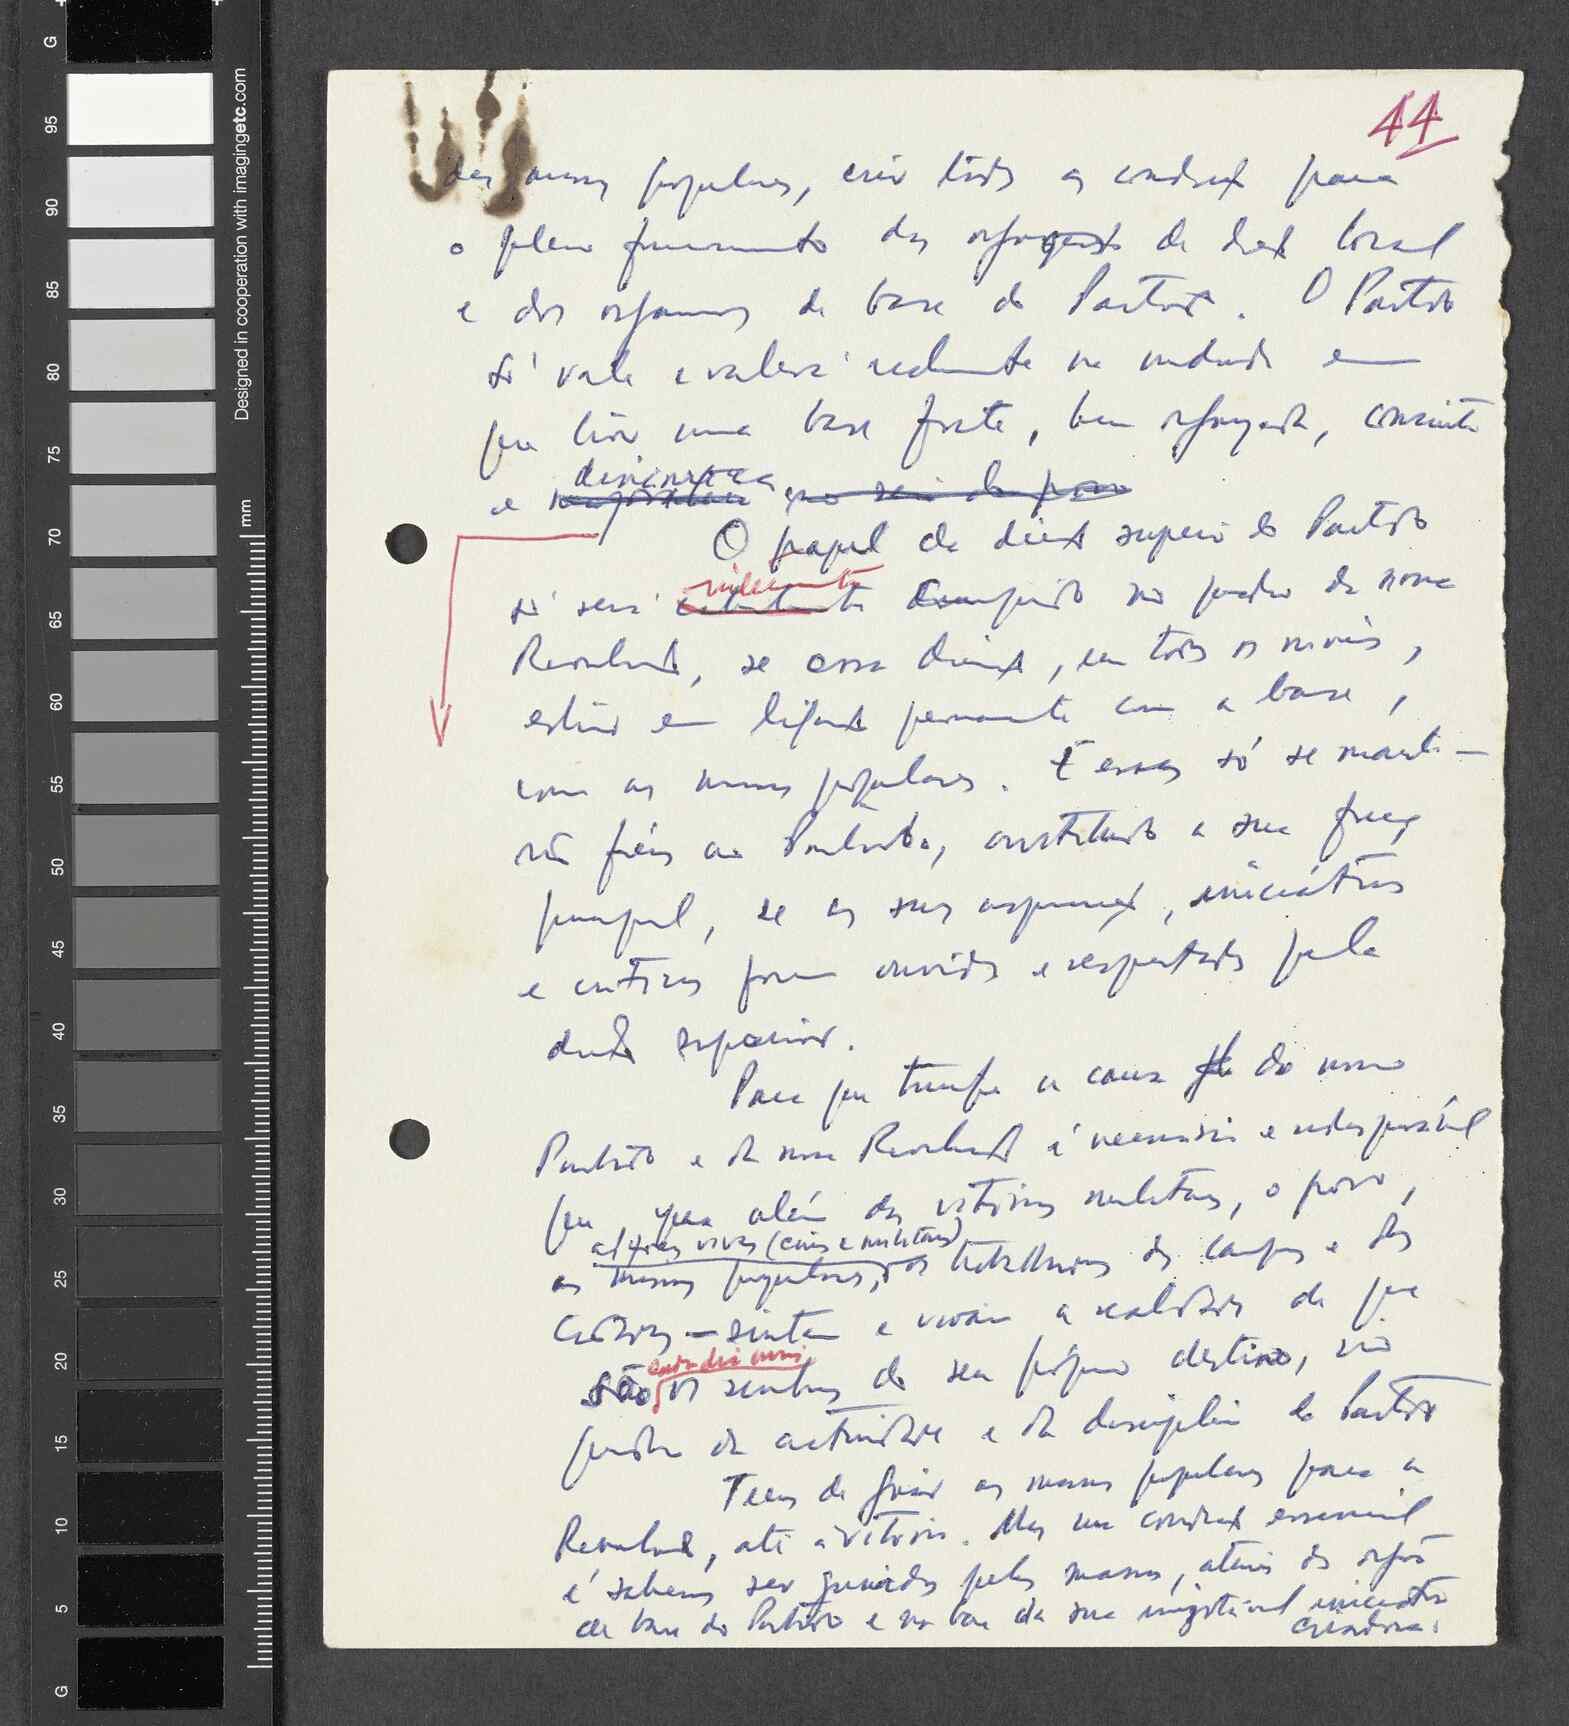 44
das massas populares, criar todas as condições para
o pleno funcionamento dos de direcção local
e dos organismos de base do Partido. O Partido
só vale e valerá realmente na medida em
que tiver uma base forte, bem organizada, consciente
e dinâmica
O papel da direcção superior do Partido
só será cumprido no quadro da nossa
Revolução, se essa direcção, em todos os níveis,
estiver em ligação permanente com a base,
com as massas populares. E essas só se mante-
rão fiéis ao Partido, constituindo a sua força
principal, se as suas aspirações, iniciativas
e críticas forem ouvidas e respeitadas pela
direcção superior.
Para que triunfe a causa do nosso
Partido e da nossa Revolução é necessário e indispensável
que, para além das vitórias militares, o povo,
as forças vivas (civis e militares)
as massas populares, os trabalhadores dos campos e das
cidades — sintam e vivam a realidade de que
são cada dia mais os senhores do seu próprio destino, no
quadro da actividade e da disciplina do Partido
Temos de guiar as massas populares para a
Revolução, até à vitória. Mas uma condição essencial
é sabermos ser guiados pelas massas, através dos órgãos
de base do Partido e na base da sua inigotável iniciativa
criadora.
G
95
90
85
80
75
70
65
60
55
50
45
40
35
30
25
20
15
10
5
G
mm
Designed in cooperation with imagingetc.com